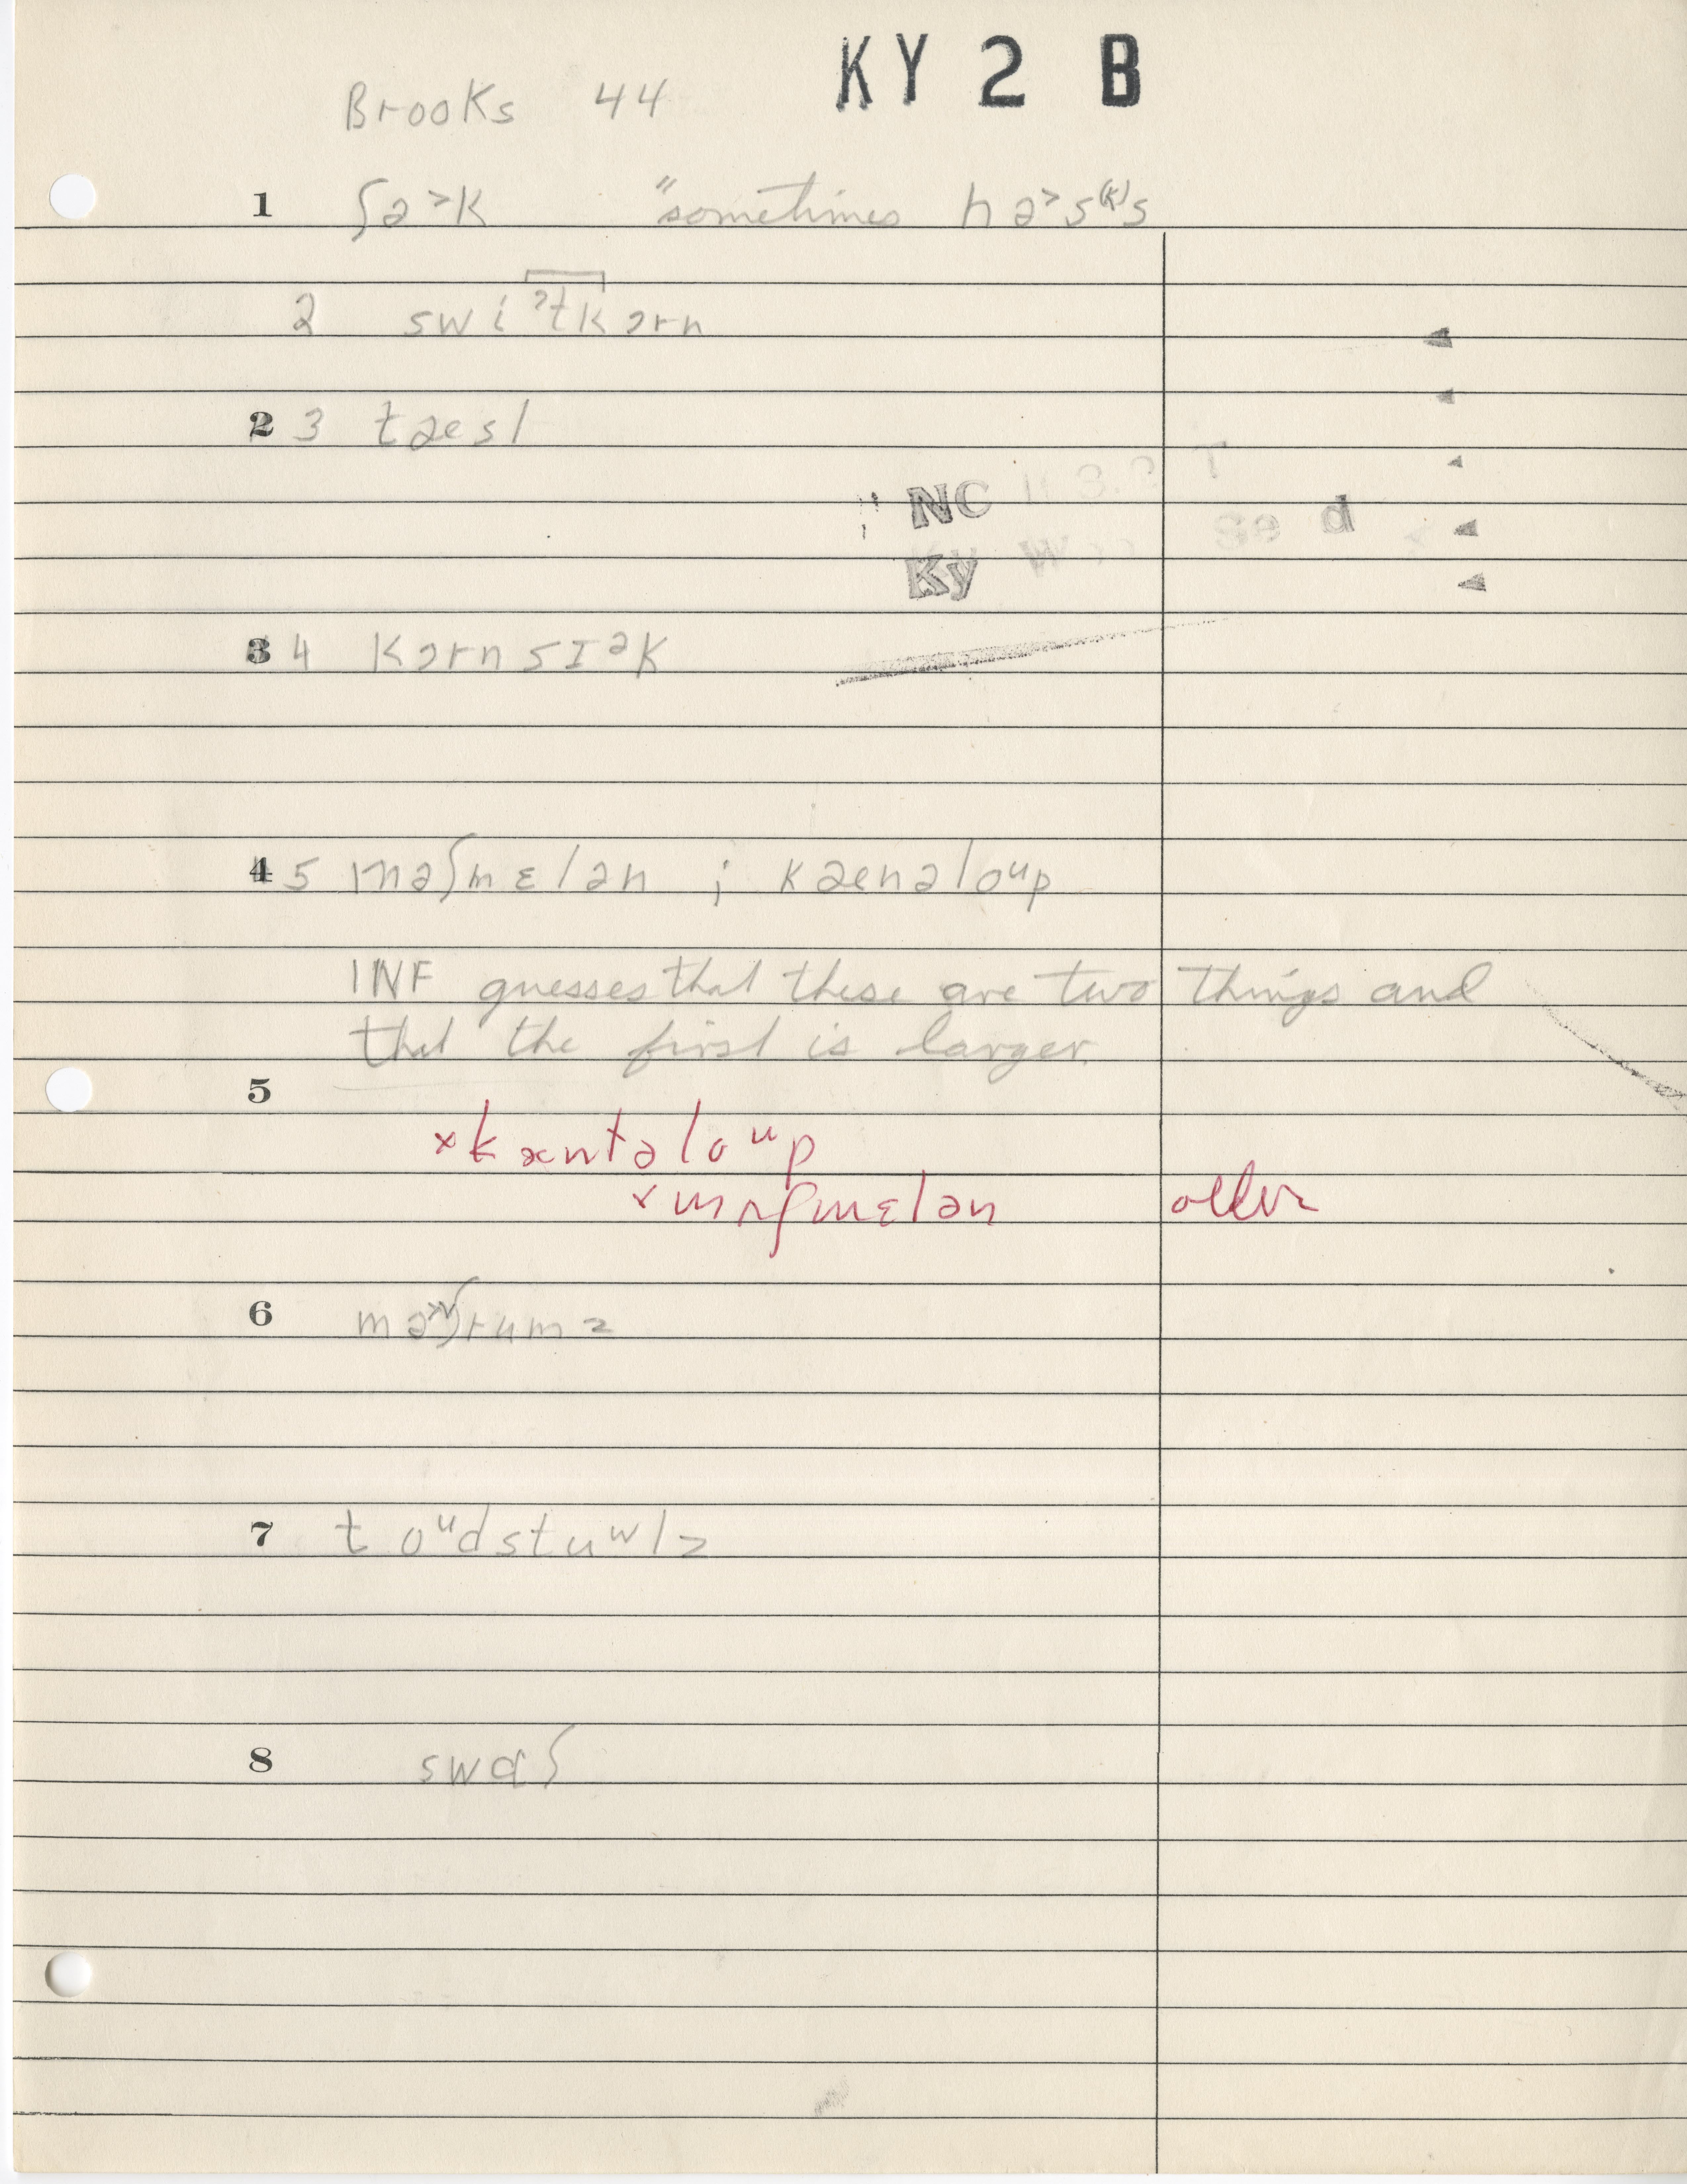 KY 2 B
Brooks 44
1 ʃə>k "sometimes hə>s⁽ᵏ⁾s
2 swiˀtkɔrn
2 3 tæsl
3 4 kɔrnsɪᵊk
NC
d
Ky
4 5 məʃmɛlən ; kænəloᵘp
INF guesses that these are two things and
that the first is larger.
5
×kæntəloᵘp
×mʌʃmɛlən older
6
7 toᵘdstuʷlz
8 swɑʃ